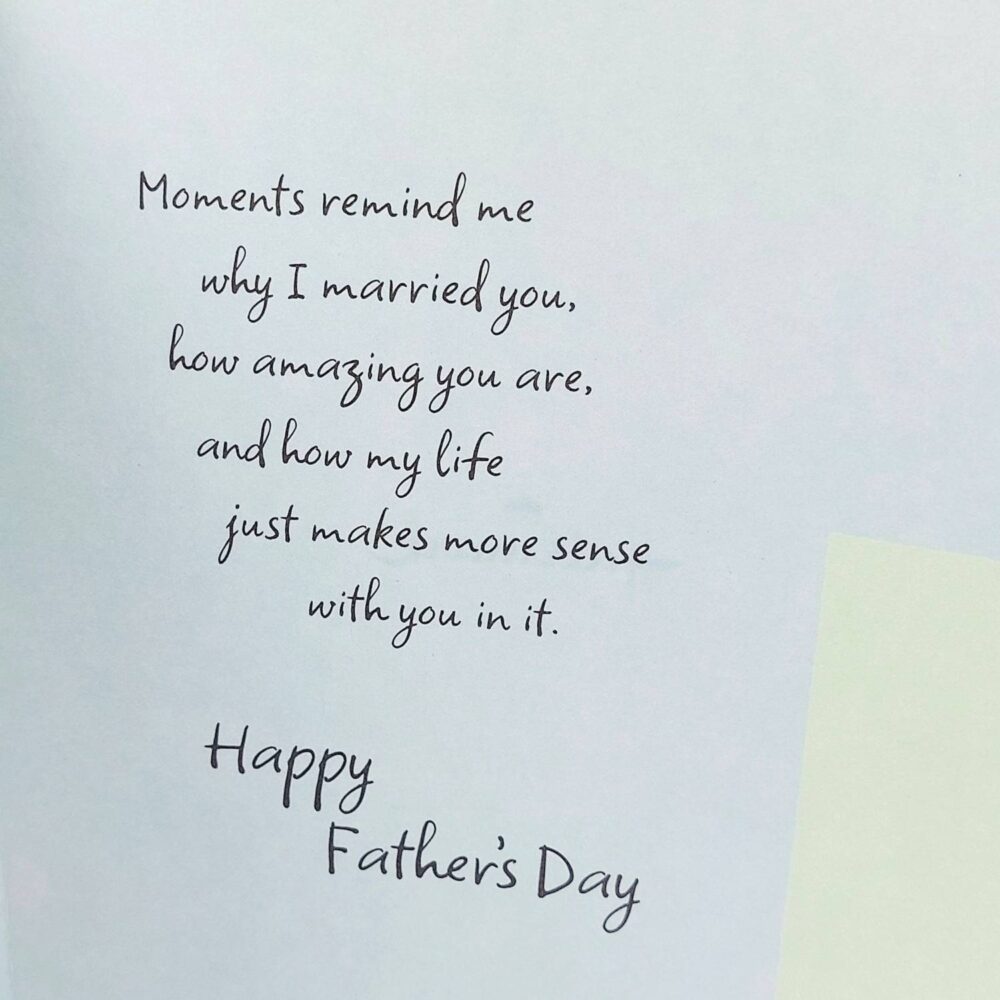 Moments remind me
why I married you,
how amazing you are,
and how my life
just makes more sense
with you in it.
Happy
Father's Day